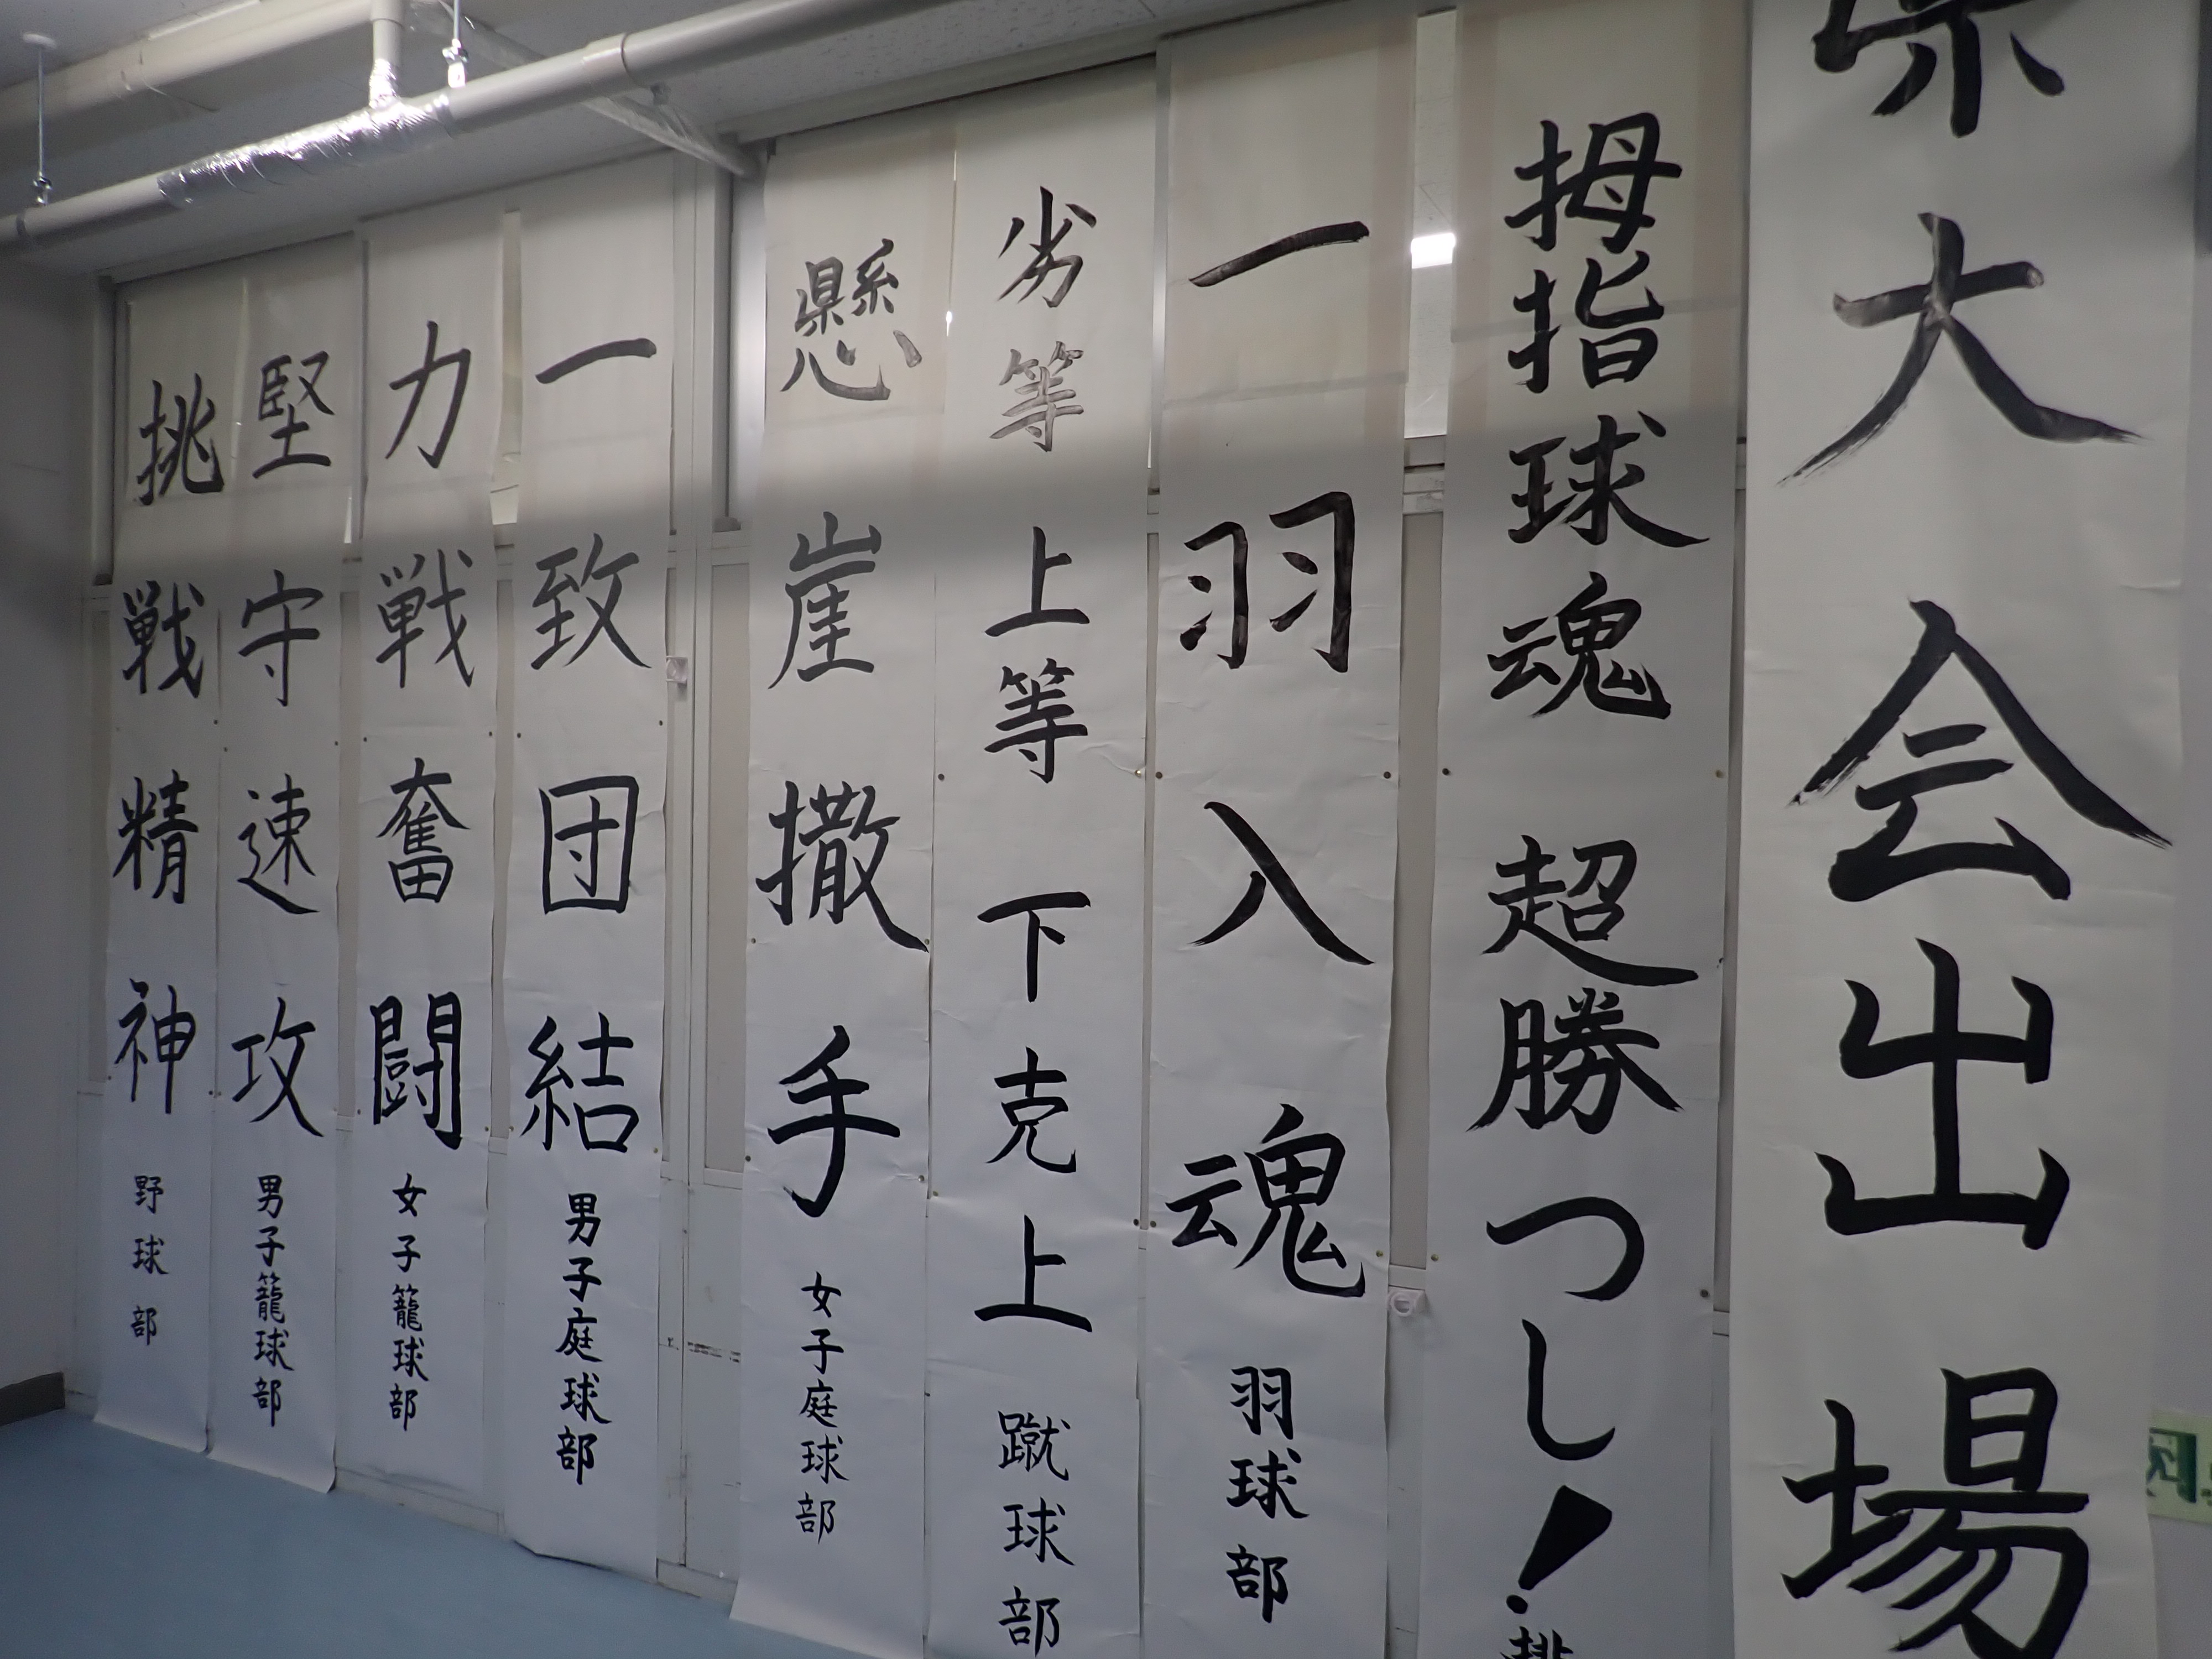 県大会出場
拇指球魂 超勝つし!
一羽入魂 羽球部
劣等上等下克上 蹴球部
懸崖撒手 女子庭球部
一致団結 男子庭球部
力戦奮闘 女子籠球部
堅守速攻 男子籠球部
挑戦精神 野球部